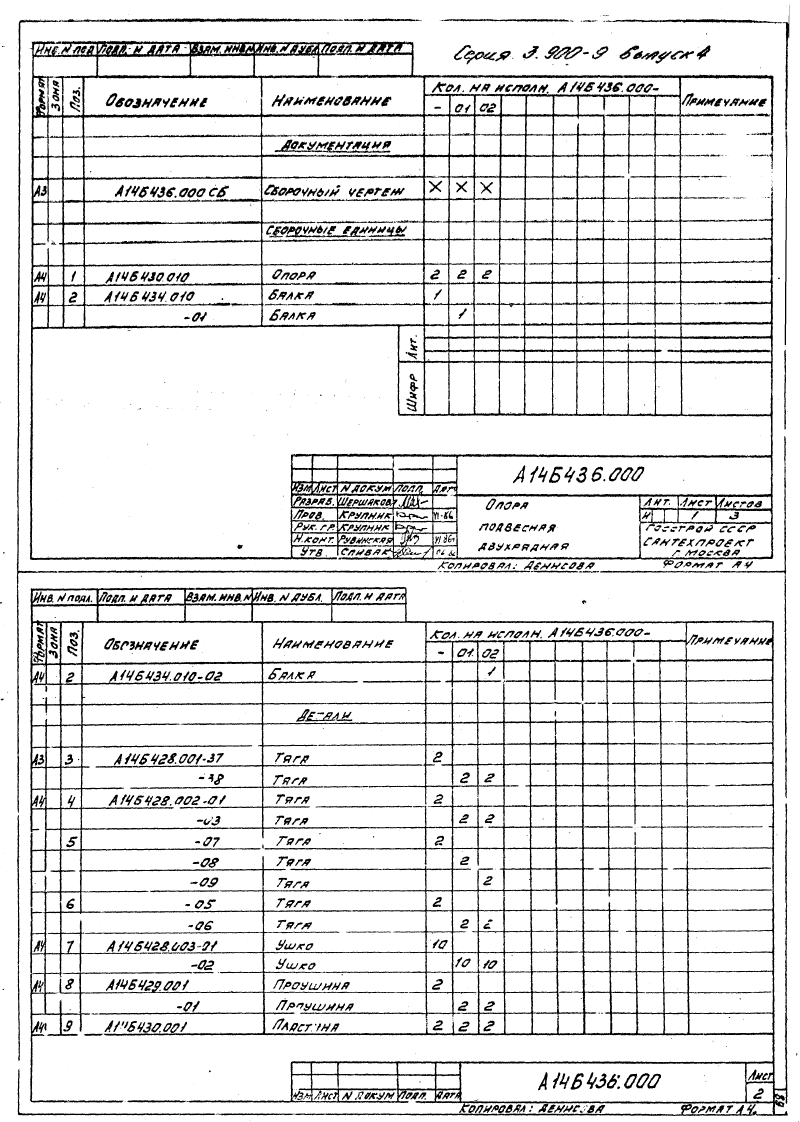 Инв. N под. Подп. и дата Взам. инв. N Инв. N дубл. Подп. и дата
Серия 3.900-9 Выпуск 4
Формат Зона Поз. Обозначение Наименование Кол. на исполн. А14Б436.000- Примечание
- 01 02
Документация
А3 А14Б436.000 СБ Сборочный чертеж X X X
Сборочные единицы
А4 1 А14Б430.010 Опора 2 2 2
А4 2 А14Б434.010 Балка 1
-01 Балка 1
Лит.
Шифр
А14Б436.000
Изм Лист N докум Подп. Дата
Разраб. Шершакова
Пров. Крупник VI-86
Рук. гр. Крупник
Н.конт. Рувинская VI 86г
Утв. Спивак
Опора
подвесная
двухрядная
Лит. Лист Листов
И 1 3
Госстрой СССР
Сантехпроект
г. Москва
Копировал: Денисова Формат А4
Инв. N подл. Подп. и дата Взам. инв. N Инв. N дубл. Подп. и дата
Формат Зона Поз. Обозначение Наименование Кол. на исполн. А14Б436.000- Примечание
- 01 02
А4 2 А14Б434.010-02 Балка 1
Детали
А3 3 А14Б428.001-37 Тяга 2
-38 Тяга 2 2
А4 4 А14Б428.002-01 Тяга 2
-03 Тяга 2 2
5 -07 Тяга 2
-08 Тяга 2
-09 Тяга 2
6 -05 Тяга 2
-06 Тяга 2 2
А4 7 А14Б428.003-01 Ушко 10
-02 Ушко 10 10
А4 8 А14Б429.001 Проушина 2
-01 Проушина 2 2
А4 9 А14Б430.001 Пластина 2 2 2
Изм Лист N докум Подп. Дата
А14Б436.000
Лист
2
Копировал: Денисова Формат А4.